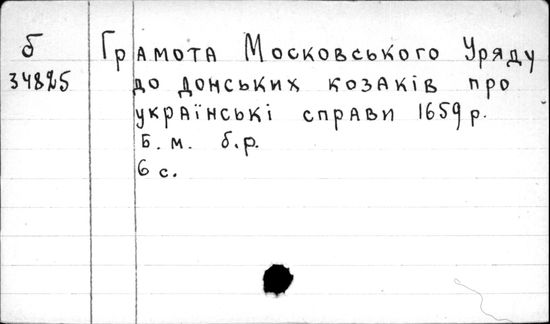 б
34825
Грамота Московського Уряду
до донських козаків про
українські справи 1659 р.
Б. м. б.р.
6 с.